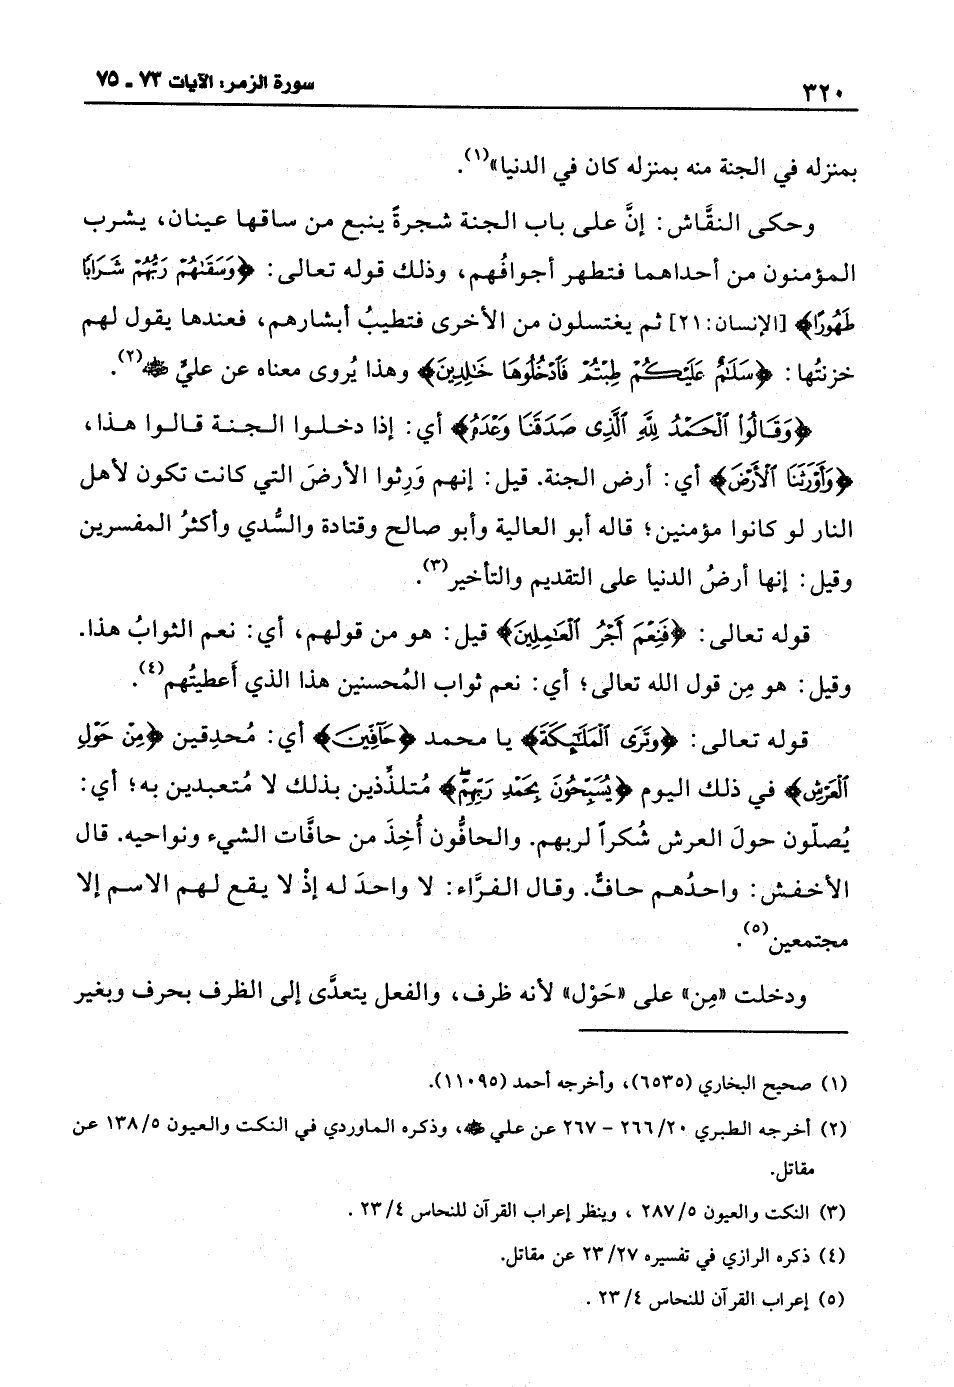 ٣٢٠ سورة الزمر: الآيات ٧٣ ـ ٧٥
بمنزله في الجنة منه بمنزله كان في الدنيا»(١).
وحكى النقَّاش: إنَّ على باب الجنة شجرةً ينبع من ساقها عينان، يشرب
المؤمنون من أحداهما فتطهر أجوافُهم، وذلك قوله تعالى: ﴿وَسَقَىٰهُمْ رَبُّهُمْ شَرَابًا
طَهُورًا﴾ [الإنسان:٢١] ثم يغتسلون من الأخرى فتطيبُ أبشارهم، فعندها يقول لهم
خزنتُها: ﴿سَلَٰمٌ عَلَيْكُمْ طِبْتُمْ فَٱدْخُلُوهَا خَٰلِدِينَ﴾ وهذا يُروى معناه عن عليٍّ ﷺ(٢).
﴿وَقَالُوا۟ ٱلْحَمْدُ لِلَّهِ ٱلَّذِى صَدَقَنَا وَعْدَهُۥ﴾ أي: إذا دخلوا الجنة قالوا هذا،
﴿وَأَوْرَثَنَا ٱلْأَرْضَ﴾ أي: أرض الجنة. قيل: إنهم وَرِثوا الأرضَ التي كانت تكون لأهل
النار لو كانوا مؤمنين؛ قاله أبو العالية وأبو صالح وقتادة والسُّدي وأكثرُ المفسرين
وقيل: إنها أرضُ الدنيا على التقديم والتأخير(٣).
قوله تعالى: ﴿فَنِعْمَ أَجْرُ ٱلْعَٰمِلِينَ﴾ قيل: هو من قولهم، أي: نعم الثوابُ هذا.
وقيل: هو مِن قول الله تعالى؛ أي: نعم ثواب المُحسنين هذا الذي أَعطيتُهم(٤).
قوله تعالى: ﴿وَتَرَى ٱلْمَلَٰٓئِكَةَ﴾ يا محمد ﴿حَآفِّينَ﴾ أي: مُحدِقين ﴿مِنْ حَوْلِ
ٱلْعَرْشِ﴾ في ذلك اليوم ﴿يُسَبِّحُونَ بِحَمْدِ رَبِّهِمْ﴾ مُتلذِّذين بذلك لا مُتعبدين به؛ أي:
يُصلّون حولَ العرش شُكراً لربهم. والحافُّون أُخِذَ من حافَّات الشيء ونواحيه. قال
الأخفش: واحدُهم حافٌّ. وقال الفرَّاء: لا واحدَ له إذْ لا يقع لهم الاسم إلا
مجتمعين(٥).
ودخلت «مِن» على «حَوْل» لأنه ظرف، والفعل يتعدَّى إلى الظرف بحرف وبغير
(١) صحيح البخاري (٦٥٣٥)، وأخرجه أحمد (١١٠٩٥).
(٢) أخرجه الطبري ٢٠/ ٢٦٦ - ٢٦٧ عن علي ﷺ، وذكره الماوردي في النكت والعيون ٥/ ١٣٨ عن
مقاتل.
(٣) النكت والعيون ٥/ ٢٨٧ ، وينظر إعراب القرآن للنحاس ٤/ ٢٣ .
(٤) ذكره الرازي في تفسيره ٢٧/ ٢٣ عن مقاتل.
(٥) إعراب القرآن للنحاس ٤/ ٢٣ .